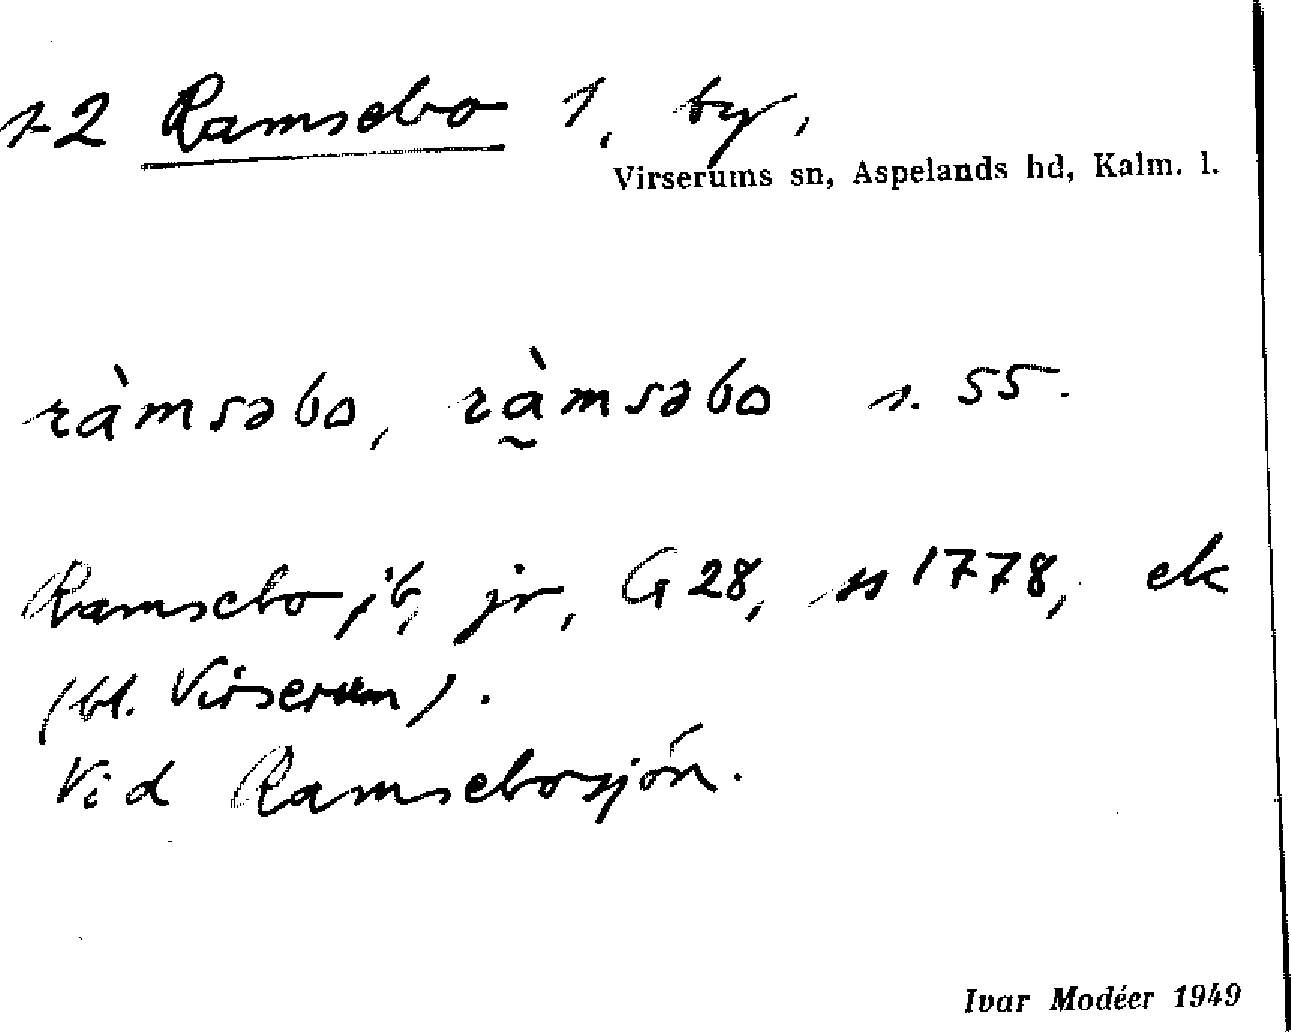 1-2 Ramsebo 1, by,
Virserums sn, Aspelands hd, Kalm. l.
ràmsəbo, rà̰msəbo s. 55.
Ramsebo jb, jr, G 28, ss 1778, ek
(bl. Virserum).
Vid Ramsebosjön.
Ivar Modéer 1949